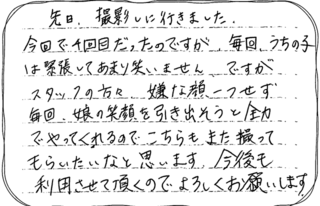 先日、撮影しに行きました。
今回で4回目だったのですが、毎回、うちの子
は緊張してあまり笑いません。ですが
スタッフの方々、嫌な顔一つせず
毎回、娘の笑顔を引き出そうと全力
でやってくれるのでこちらもまた撮って
もらいたいなと思います。今後も
利用させて頂くので、よろしくお願いします